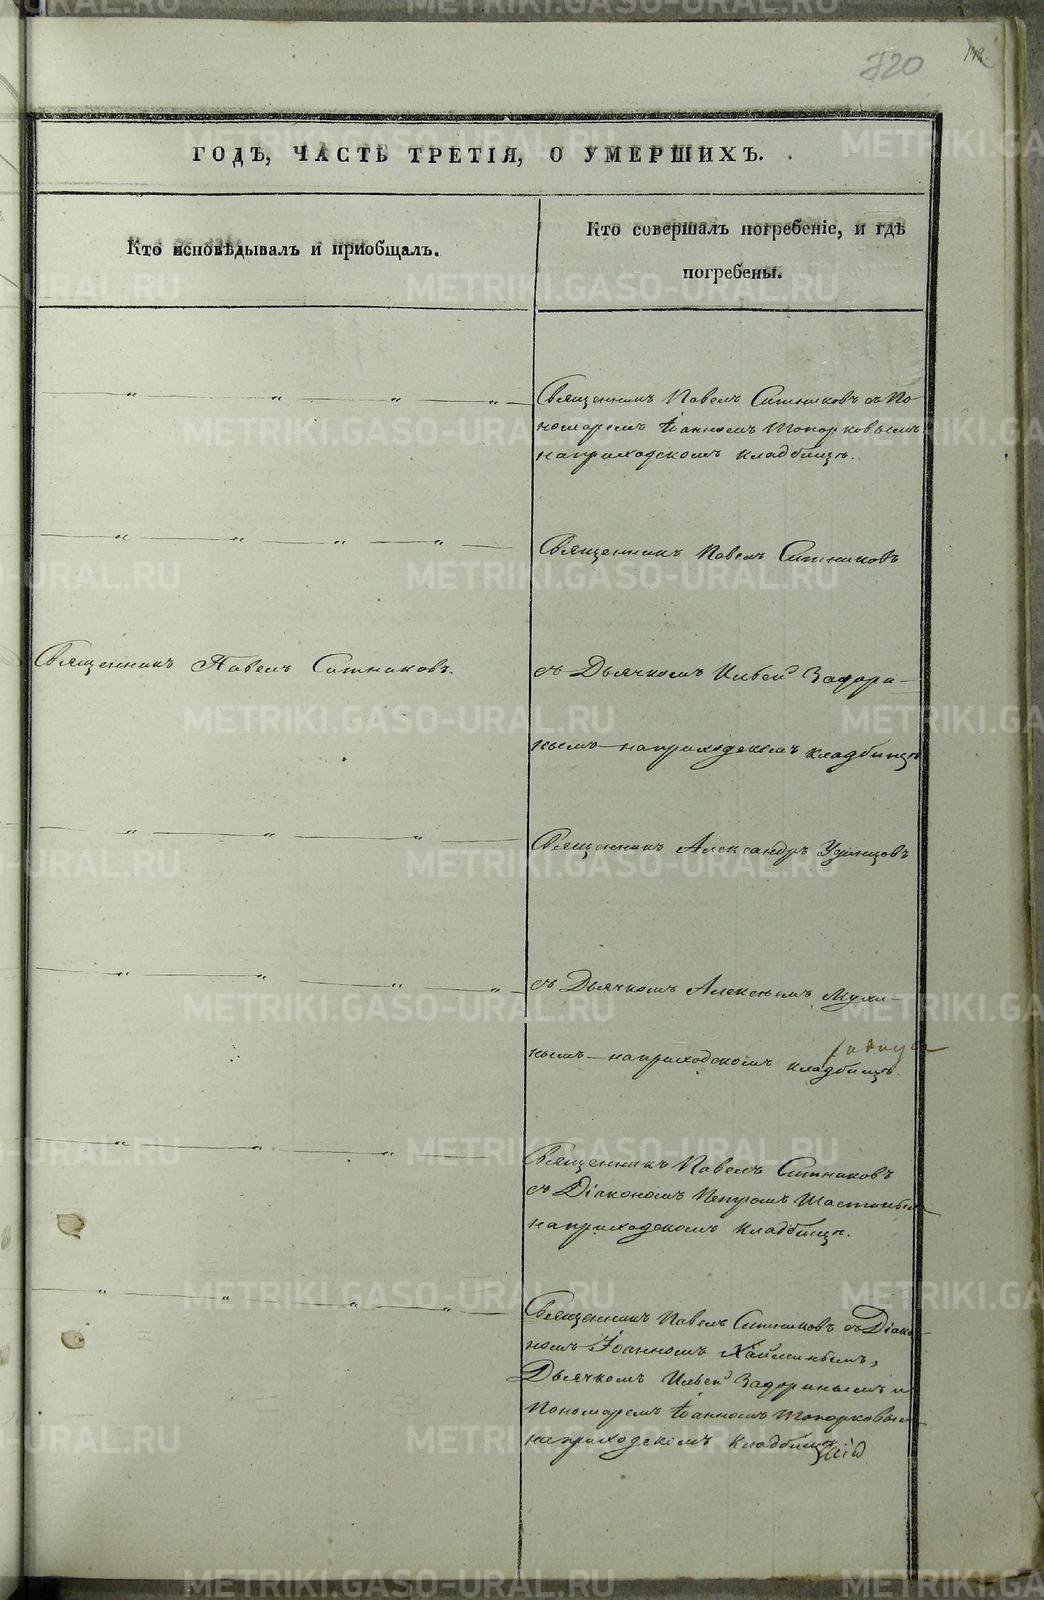 720
ГОДѢ, ЧАСТЬ ТРЕТІЯ, О УМЕРШИХЪ.
Кто исповѣдывалъ и пріобщалъ.
Кто совершалъ погребеніе, и гдѣ
погребены.
Священникъ Павелъ Ситниковъ съ По-
номаремъ Іоанномъ Топорковымъ
на приходскомъ кладбищѣ.
Священникъ Павелъ Ситниковъ
Священникъ Павелъ Ситниковъ.
съ Дьячкомъ Ильей Задори-
нымъ на приходскомъ кладбищѣ
Священникъ Александръ Удинцовъ
съ Дьячкомъ Алексѣемъ Мухи-
нымъ на приходскомъ кладбищѣ.
Священникъ Павелъ Ситниковъ
съ Діакономъ Петромъ
на приходскомъ кладбищѣ.
Священникъ Павелъ Ситниковъ съ Діако-
номъ Іоанномъ
Дьячкомъ Ильей Задоринымъ и
Пономаремъ Іоанномъ Топорковым
на приходскомъ кладбищѣ
METRIKI.GASO-URAL.RU